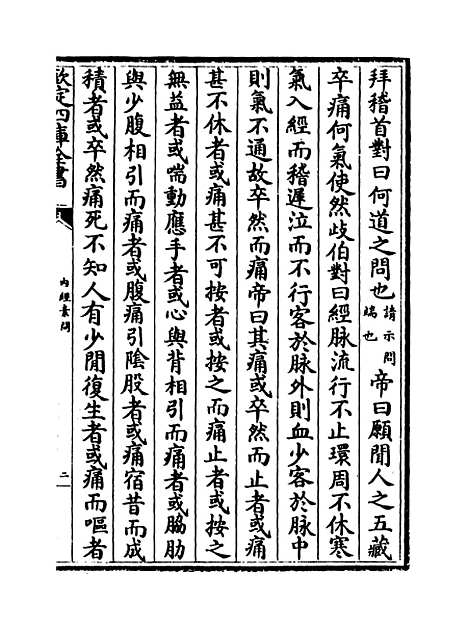 拜稽首對曰何道之問也請示問端也帝曰願聞人之五藏
卒痛何氣使然歧伯對曰經脉流行不止環周不休寒
氣入經而稽遲泣而不行客於脉外則血少客於脉中
則氣不通故卒然而痛帝曰其痛或卒然而止者或痛
甚不休者或痛甚不可按者或按之而痛止者或按之
無益者或喘動應手者或心與背相引而痛者或脇肋
與少腹相引而痛者或腹痛引陰股者或痛宿昔而成
積者或卒然痛死不知人有少閒復生者或痛而嘔者
欽定四庫全書
內經素問
二